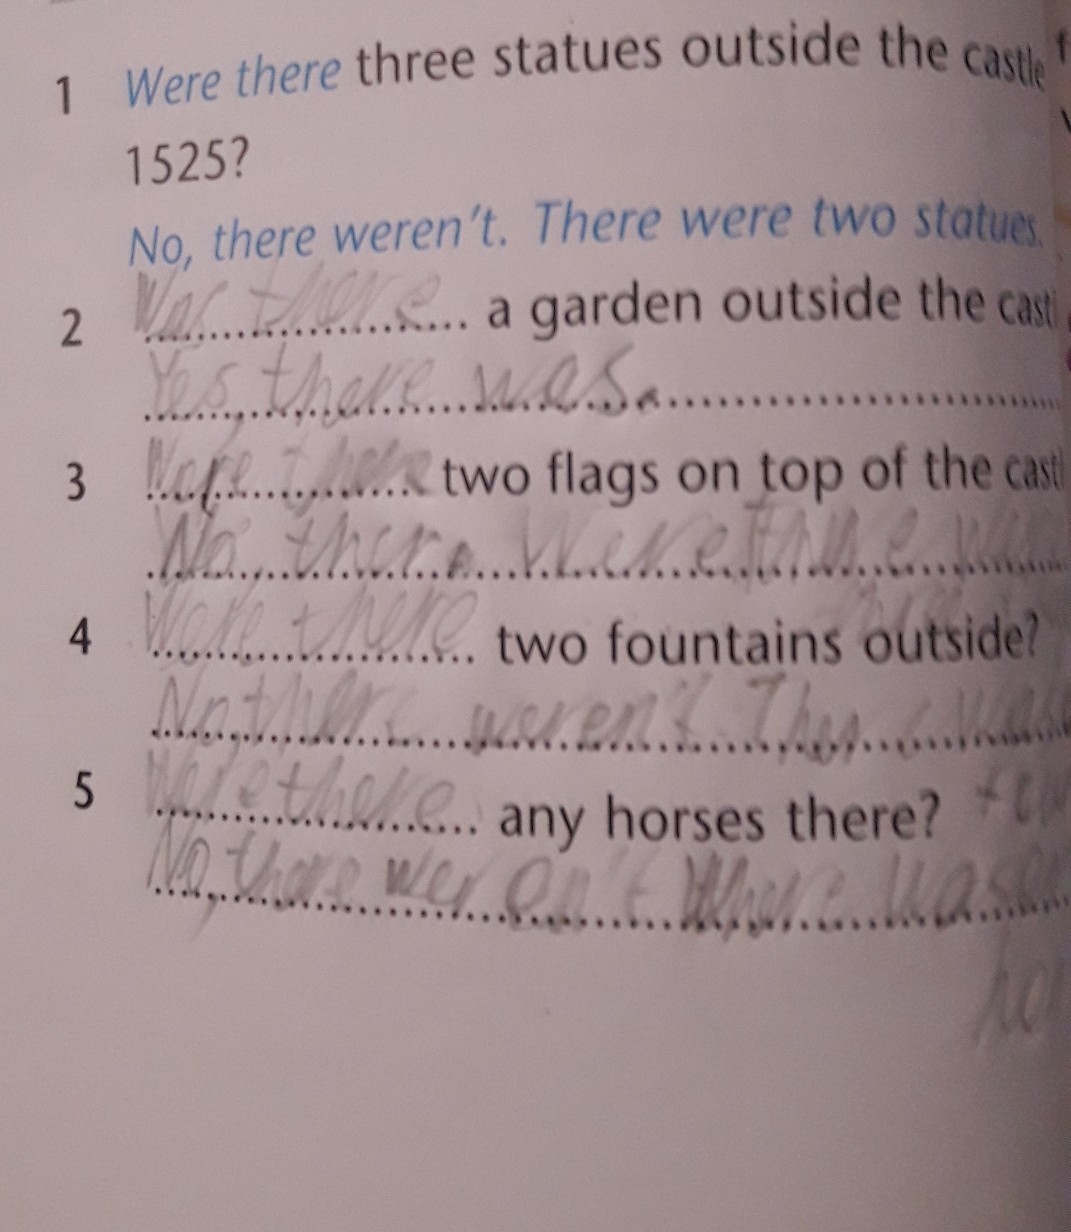 1 Were there three statues outside the castle
1525?
No, there weren't. There were two statues.
2 Was there a garden outside the castl
Yes, there was.
3 Were there two flags on top of the castl
No, there were
4 Were there two fountains outside?
No, there weren't. There was
5 Were there any horses there?
No, there weren't there was